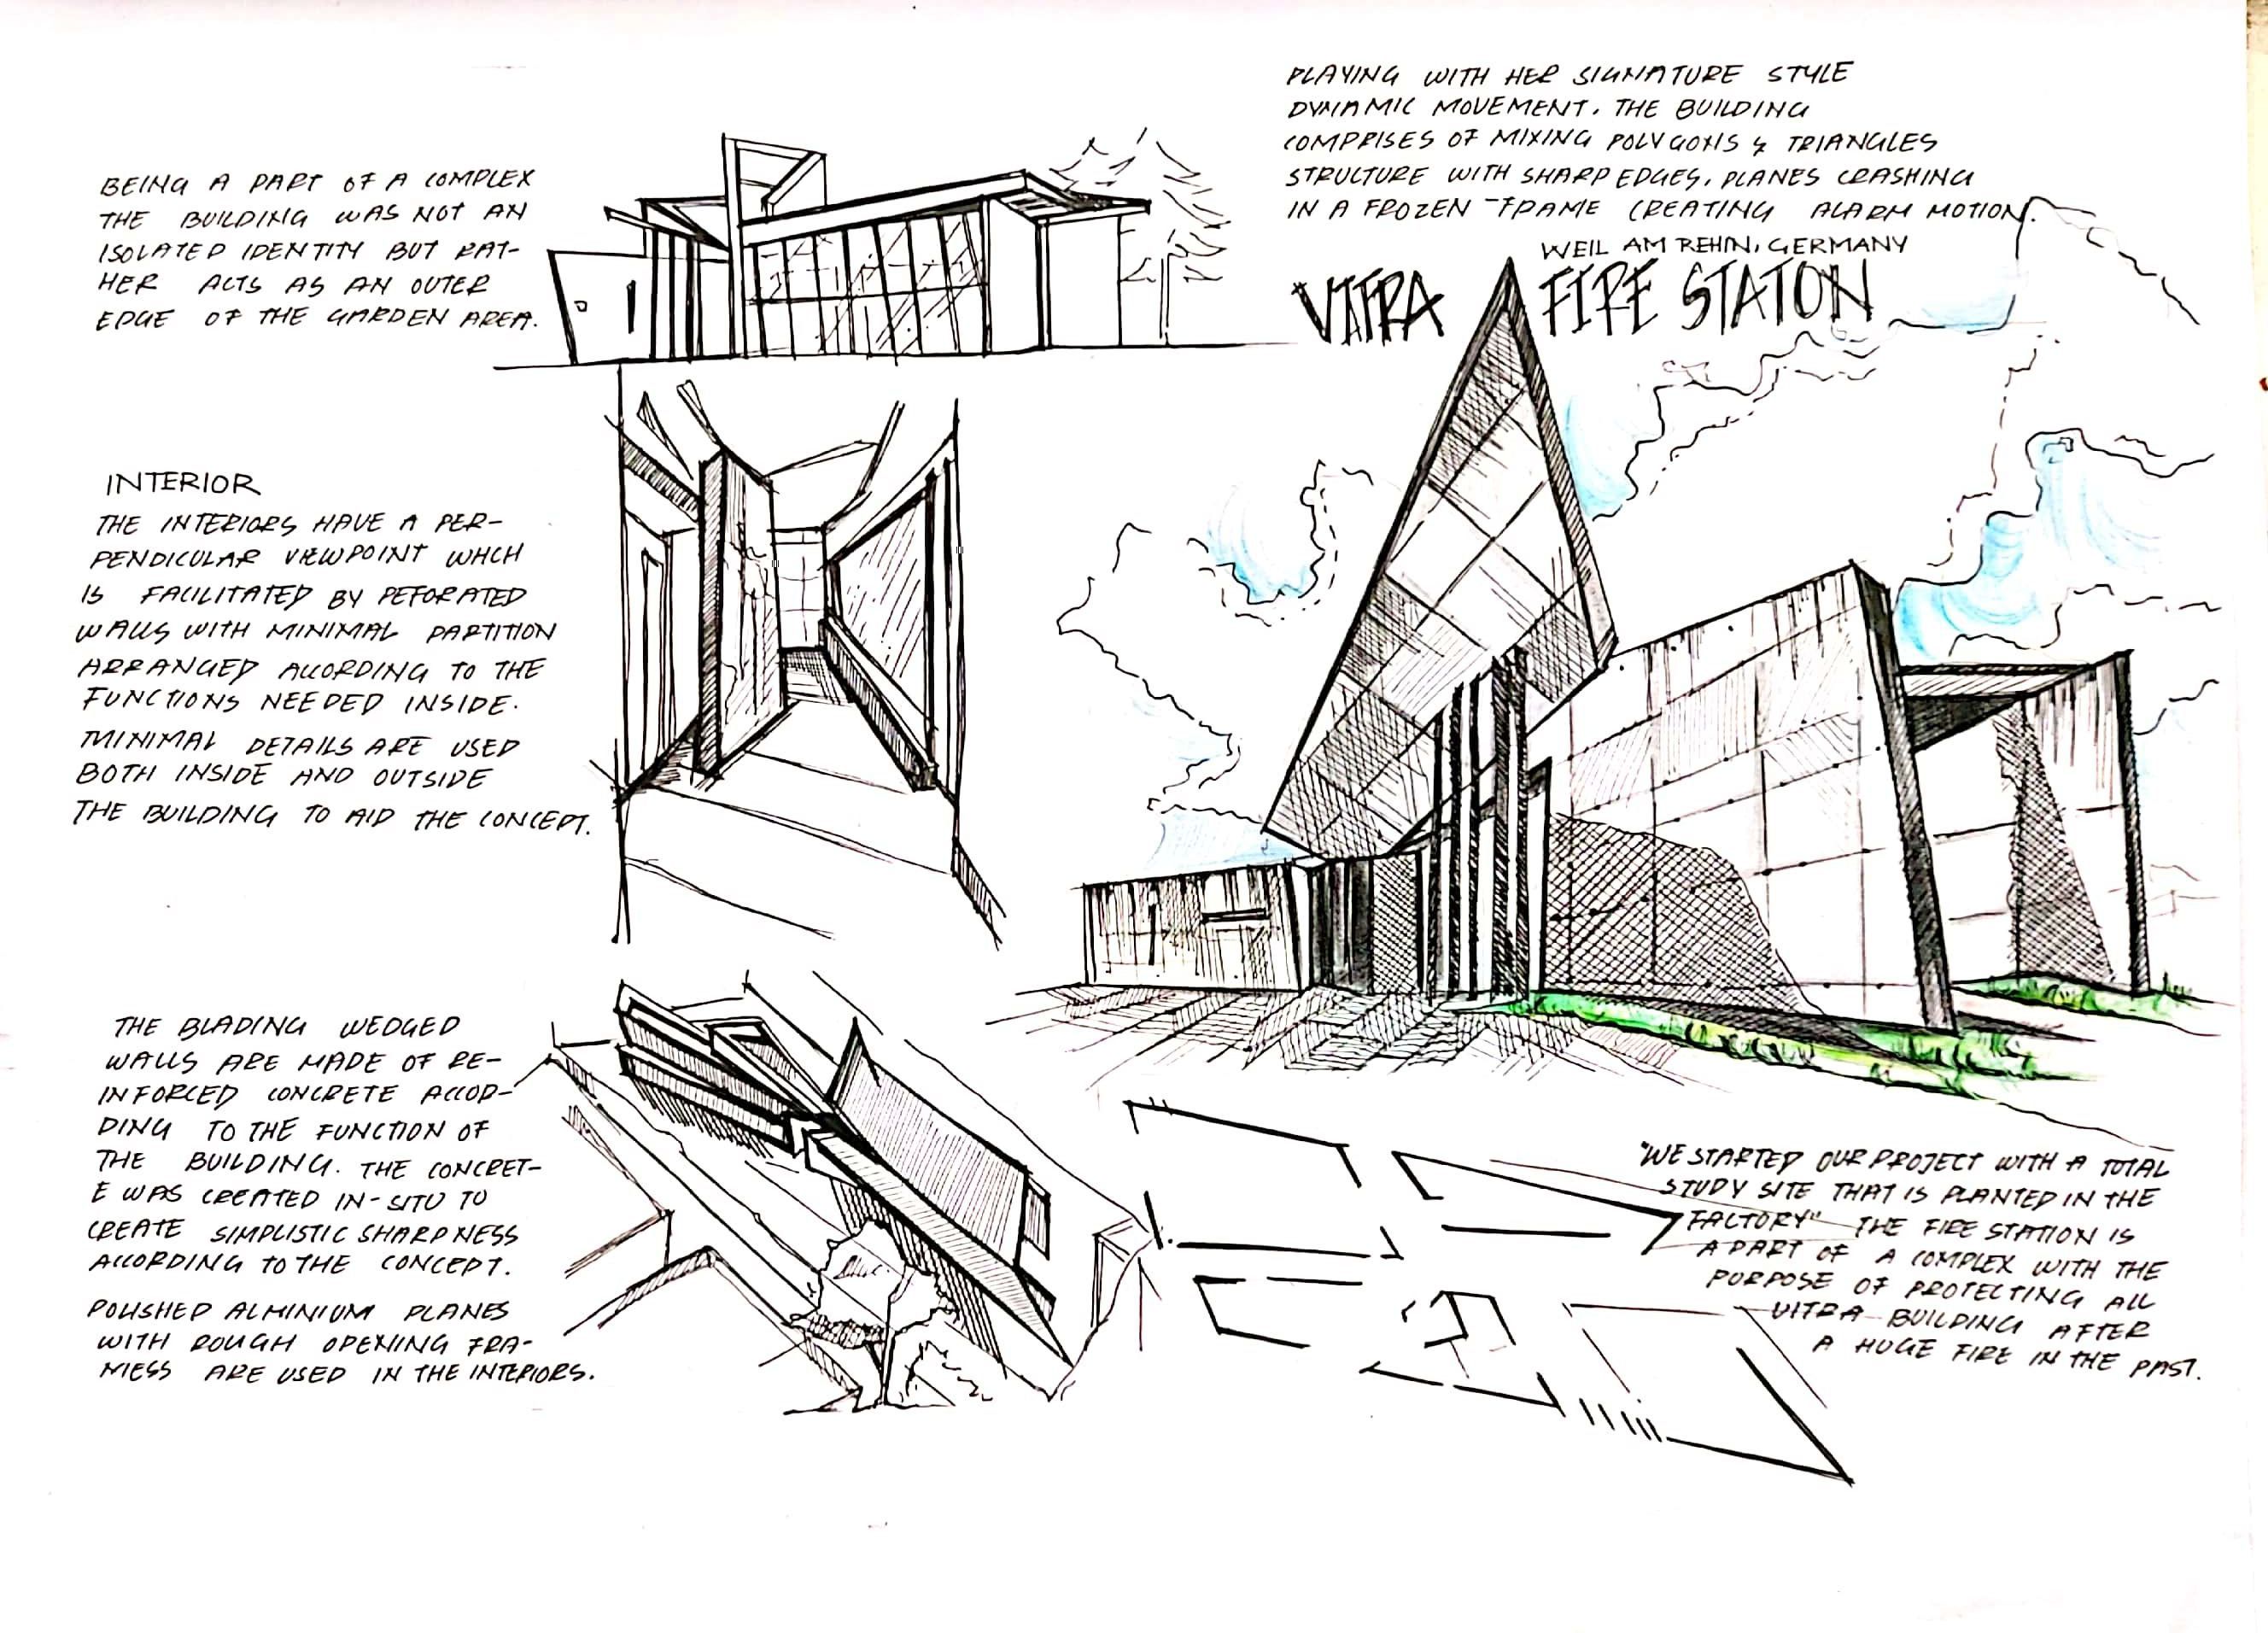 PLAYING WITH HER SIGNATURE STYLE
DYNAMIC MOVEMENT. THE BUILDING
COMPRISES OF MIXING POLYGONS & TRIANGLES
STRUCTURE WITH SHARP EDGES, PLANES CRASHING
IN A FROZEN FRAME CREATING ALARM MOTION.
WEIL AM REHIN, GERMANY
VITRA FIRE STATON
BEING A PART OF A COMPLEX
THE BUILDING WAS NOT AN
ISOLATED IDENTITY BUT RAT-
HER ACTS AS AN OUTER
EDGE OF THE GARDEN AREA.
INTERIOR
THE INTERIORS HAVE A PER-
PENDICULAR VIEWPOINT WHCH
IS FACILITATED BY PEFORATED
WALLS WITH MINIMAL PARTITION
ARRANGED ACCORDING TO THE
FUNCTIONS NEEDED INSIDE.
MINIMAL DETAILS ARE USED
BOTH INSIDE AND OUTSIDE
THE BUILDING TO AID THE CONCEPT.
THE BLADING WEDGED
WALLS ARE MADE OF RE-
INFORCED CONCRETE ACCOR-
DING TO THE FUNCTION OF
THE BUILDING. THE CONCRET-
E WAS CREATED IN-SITU TO
CREATE SIMPLISTIC SHARPNESS
ACCORDING TO THE CONCEPT.
POLISHED ALMINIUM PLANES
WITH ROUGH OPENING FRA-
MESS ARE USED IN THE INTERIORS.
"WE STARTED OUR PROJECT WITH A TOTAL
STUDY SITE THAT IS PLANTED IN THE
FACTORY" THE FIRE STATION IS
A PART OF A COMPLEX WITH THE
PURPOSE OF PROTECTING ALL
VITRA BUILDING AFTER
A HUGE FIRE IN THE PAST.